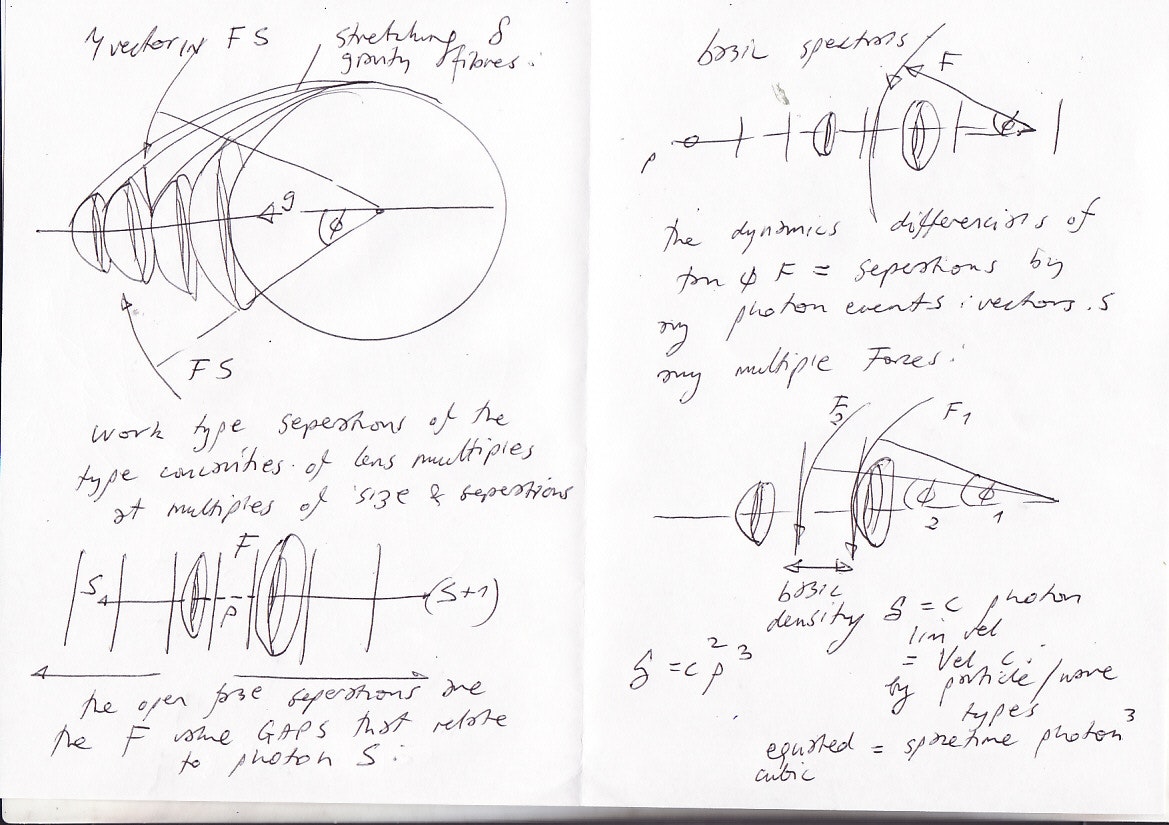 vector in F S
stretching &
gravity fibres :
g
ϕ
F S
work type seperations of the
type concavities of lens multiples
at multiples of size & seperations
F
S
p
(S+1)
the open base seperations are
the F value GAPS that relate
to photon S :
basic spectrals
F
ϕ
p
the dynamics differencials of
tan ϕ F = seperations by
any photon events : vectors . S
any multiple Forces :
F2
F1
ϕ2 ϕ1
basic
density
S = c photon
lin vel
= Vel c :
by particle / wave
types
S = c² p³
equated = spacetime photon³
cubic